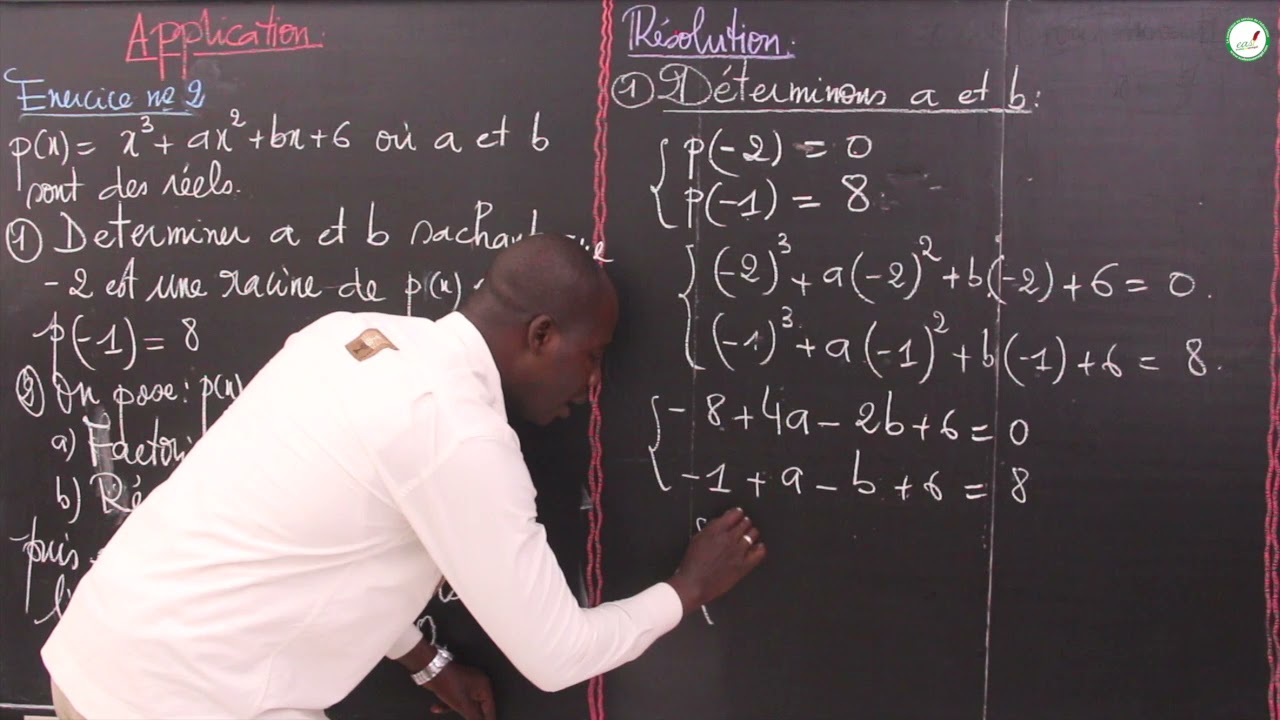 Application.
Exercice nº 2
p(x) = x³ + ax² + bx + 6 où a et b
sont des réels.
① Determiner a et b sachant que
-2 est une racine de p(x)
p(-1) = 8
② On pose : p(x)
a) Factori
b) Ré
puis
Résolution.
① Déterminons a et b :
p(-2) = 0
p(-1) = 8
(-2)³ + a(-2)² + b(-2) + 6 = 0.
(-1)³ + a(-1)² + b(-1) + 6 = 8.
-8 + 4a - 2b + 6 = 0
-1 + a - b + 6 = 8